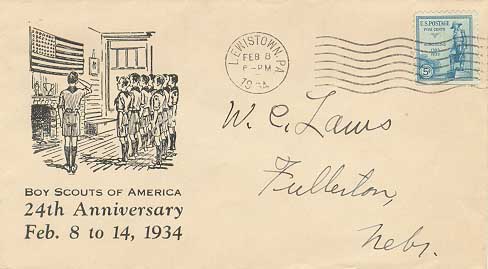 LEWISTOWN, PA.
FEB 8
6-PM
1934
U.S. POSTAGE
FIVE CENTS
5¢
W. C. Laws
Fullerton,
Nebr.
BOY SCOUTS OF AMERICA
24th Anniversary
Feb. 8 to 14, 1934